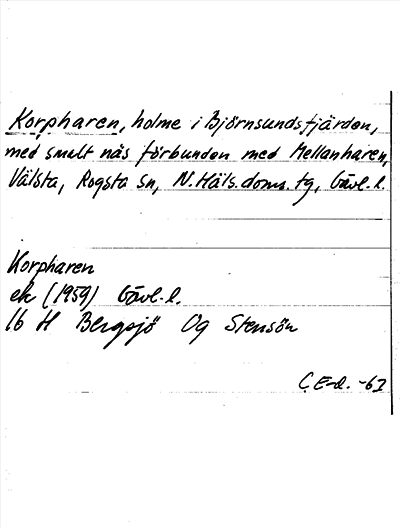 Korpharen, holme i Björnsundsfjärden,
med smalt näs förbunden med Mellanharen,
Välsta, Rogsta sn, N. Häls. doms. tg, Gävl. l.
Korpharen
ek (1959) Gävl. l.
16 H Bergsjö Og Stensön
C. E-d. -63